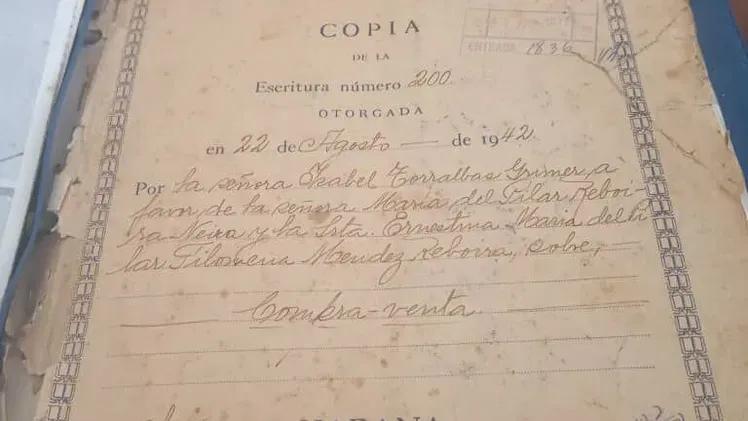 COPIA
DE LA
Escritura número 200.
OTORGADA
en 22 de Agosto — de 1942.
Por la señora Isabel Torralbas Grimer, a
favor de la señora María del Pilar Reboi-
ra Neira y la Srta. Ernestina María del Pi
lar Filomena Mendez Reboira, sobre, —
— Compra-venta. —
HABANA
ENTRADA 1836